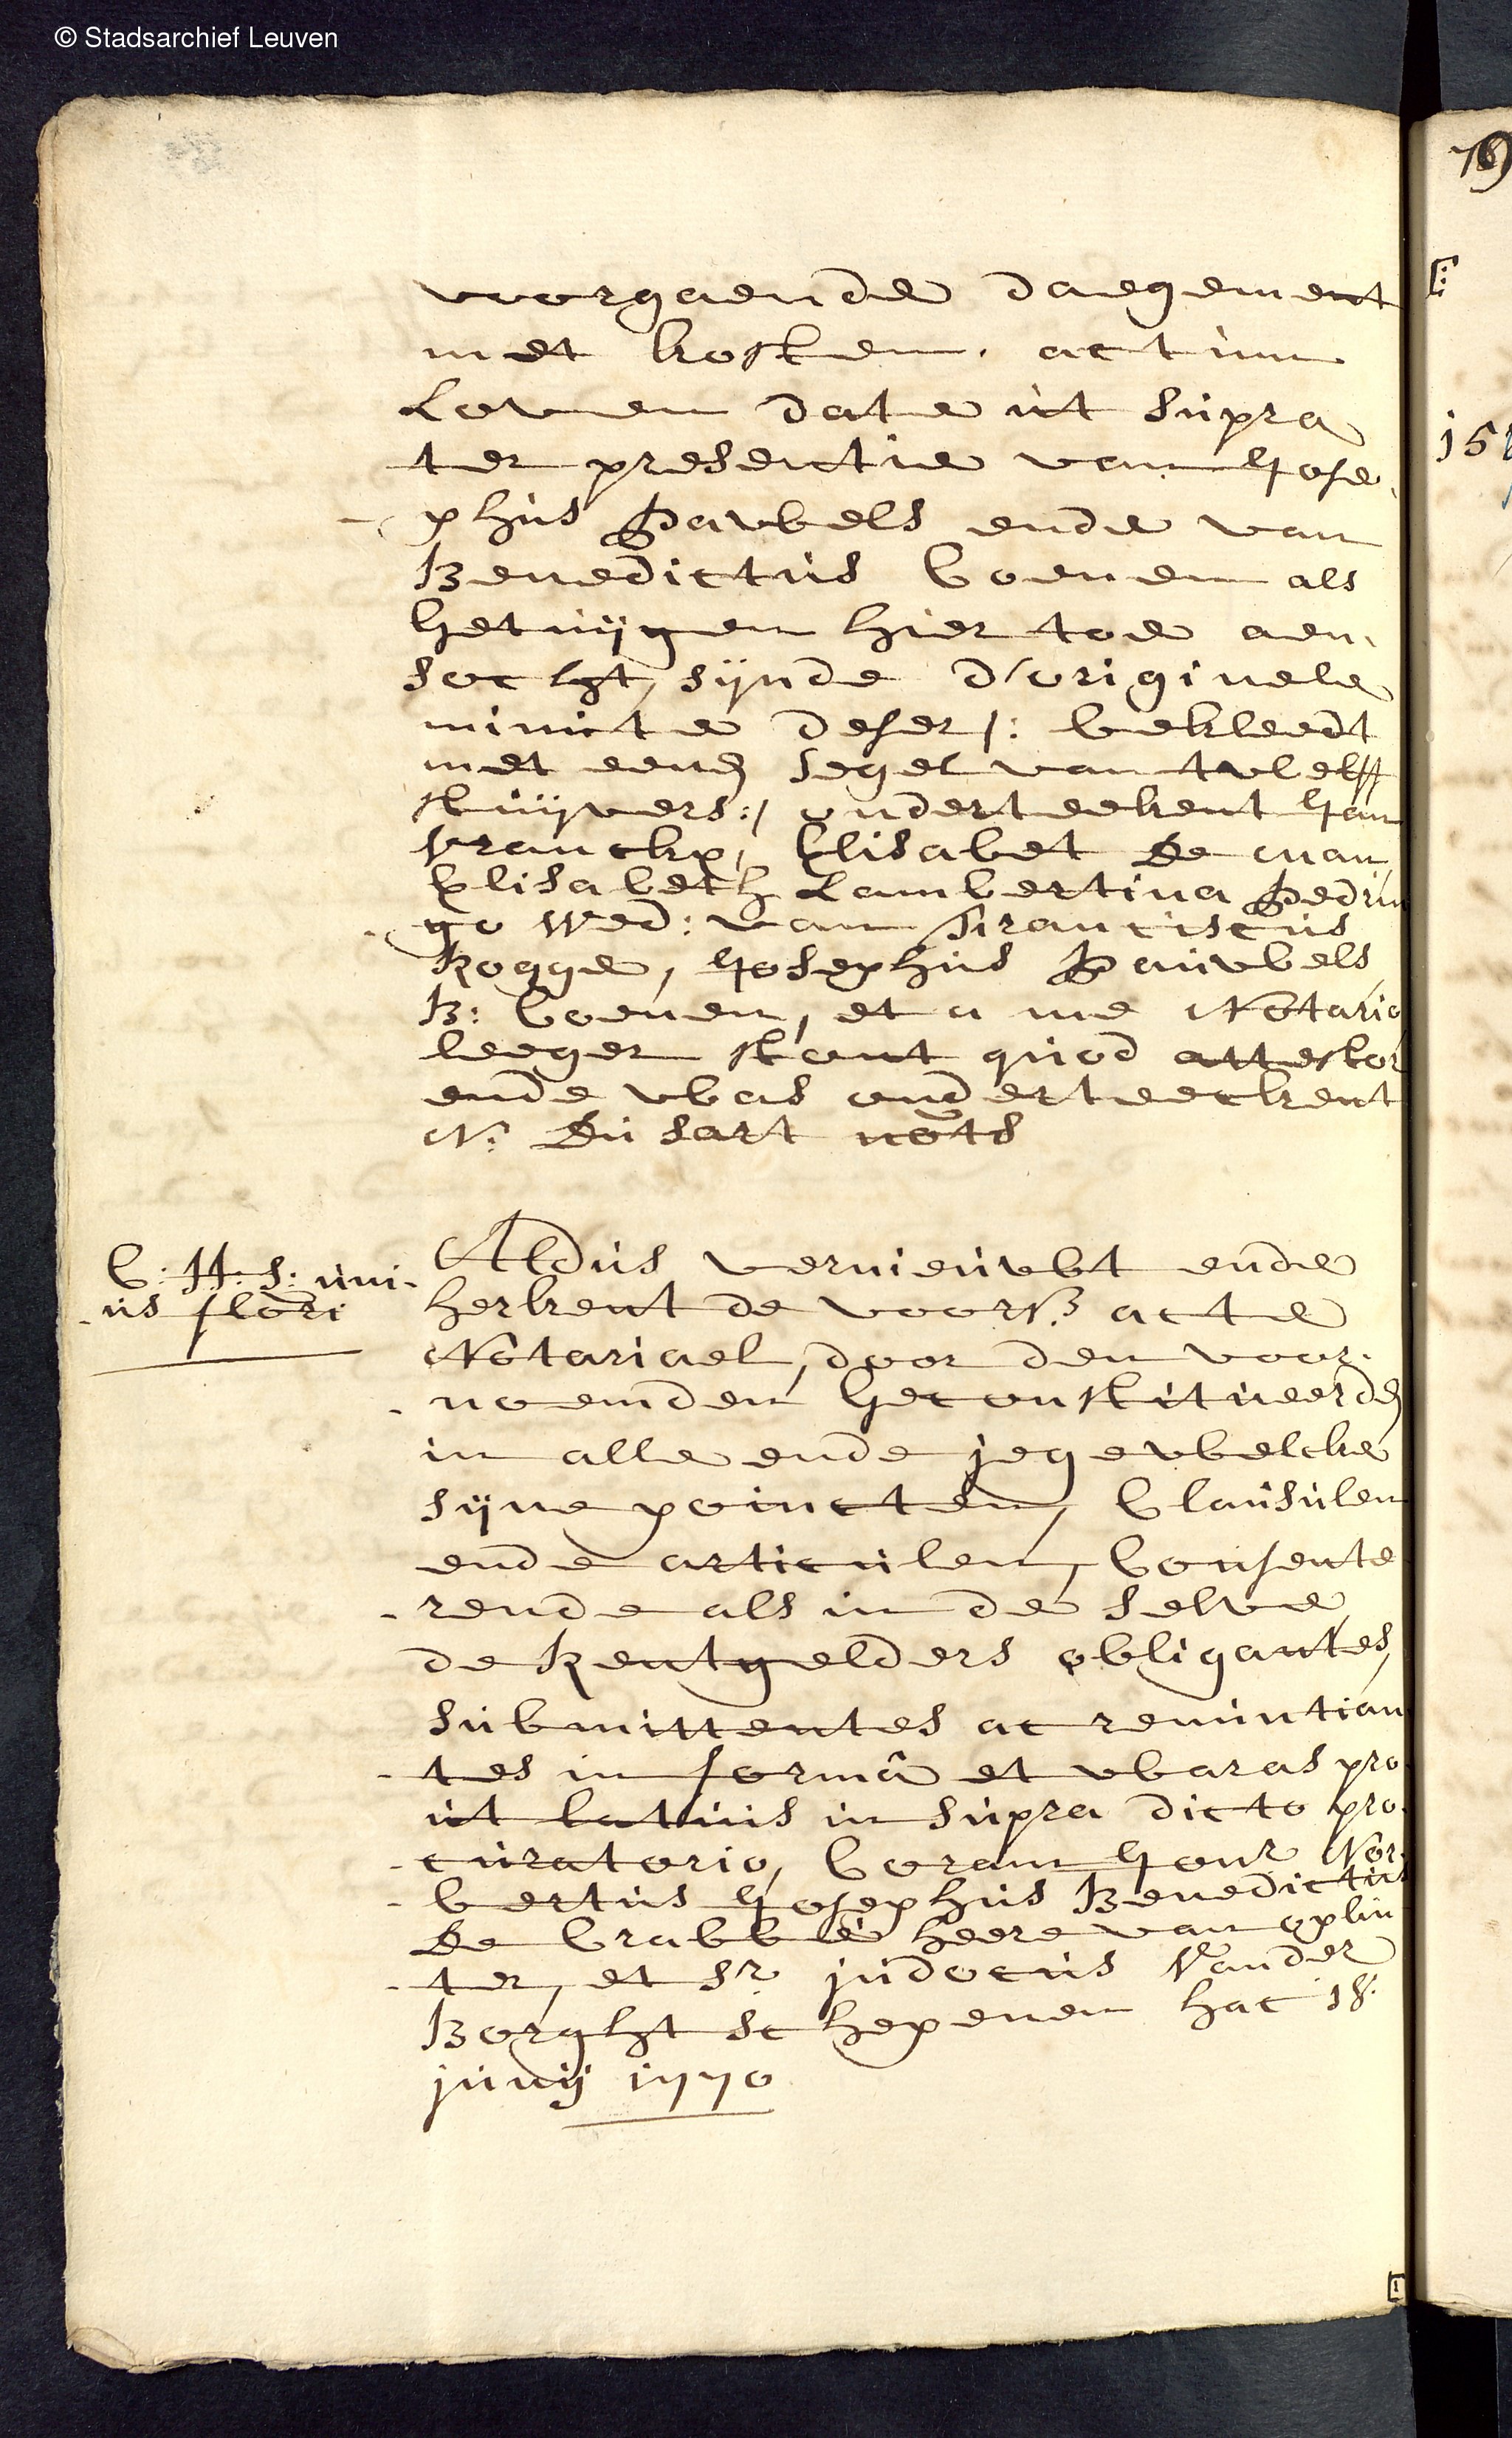 © Stadsarchief Leuven
voorgaende daegement
met kosten. actum
Loven date ut supra
ter presentie van Jose-
phus Pauwels ende van
Benedictus Coenen als
getuijgen hier toe aen-
socht, sijnde d'originele
minute deser /: bekleedt
met eenen segel van twelff
stuijvers :/ onderteekent Jan
Vranckx, Elisabet De Man,
Elisabeth Lambertina Pedrin
go Wed: van Franciscus
Rogge, Josephus Pauwels,
B: Coenen, et a me Notario
leeger stont quod attestor
ende was onderteeckent
N: Du Sart nots
C: H: S: uni-
us flori
Aldus vernieuwt ende
herkent de voors. acte
Notariael, door den voor-
noemden geconstitueerden
in alle ende jegewelcke
sijne poincten, Clausulen
ende articulen, Consente
rende als in de selve
de Rentgelders obligantes,
submittentes ac renuntian
tes in formâ et waras pro
ut latius in supra dicto pro-
curatorio, Coram Jonr Nor-
bertus Josephus Benedictus
De Crabbé heere van oplin
ter, et Sr judocus Vander
Borght schepenen hac 18.
junij 1770
769
151